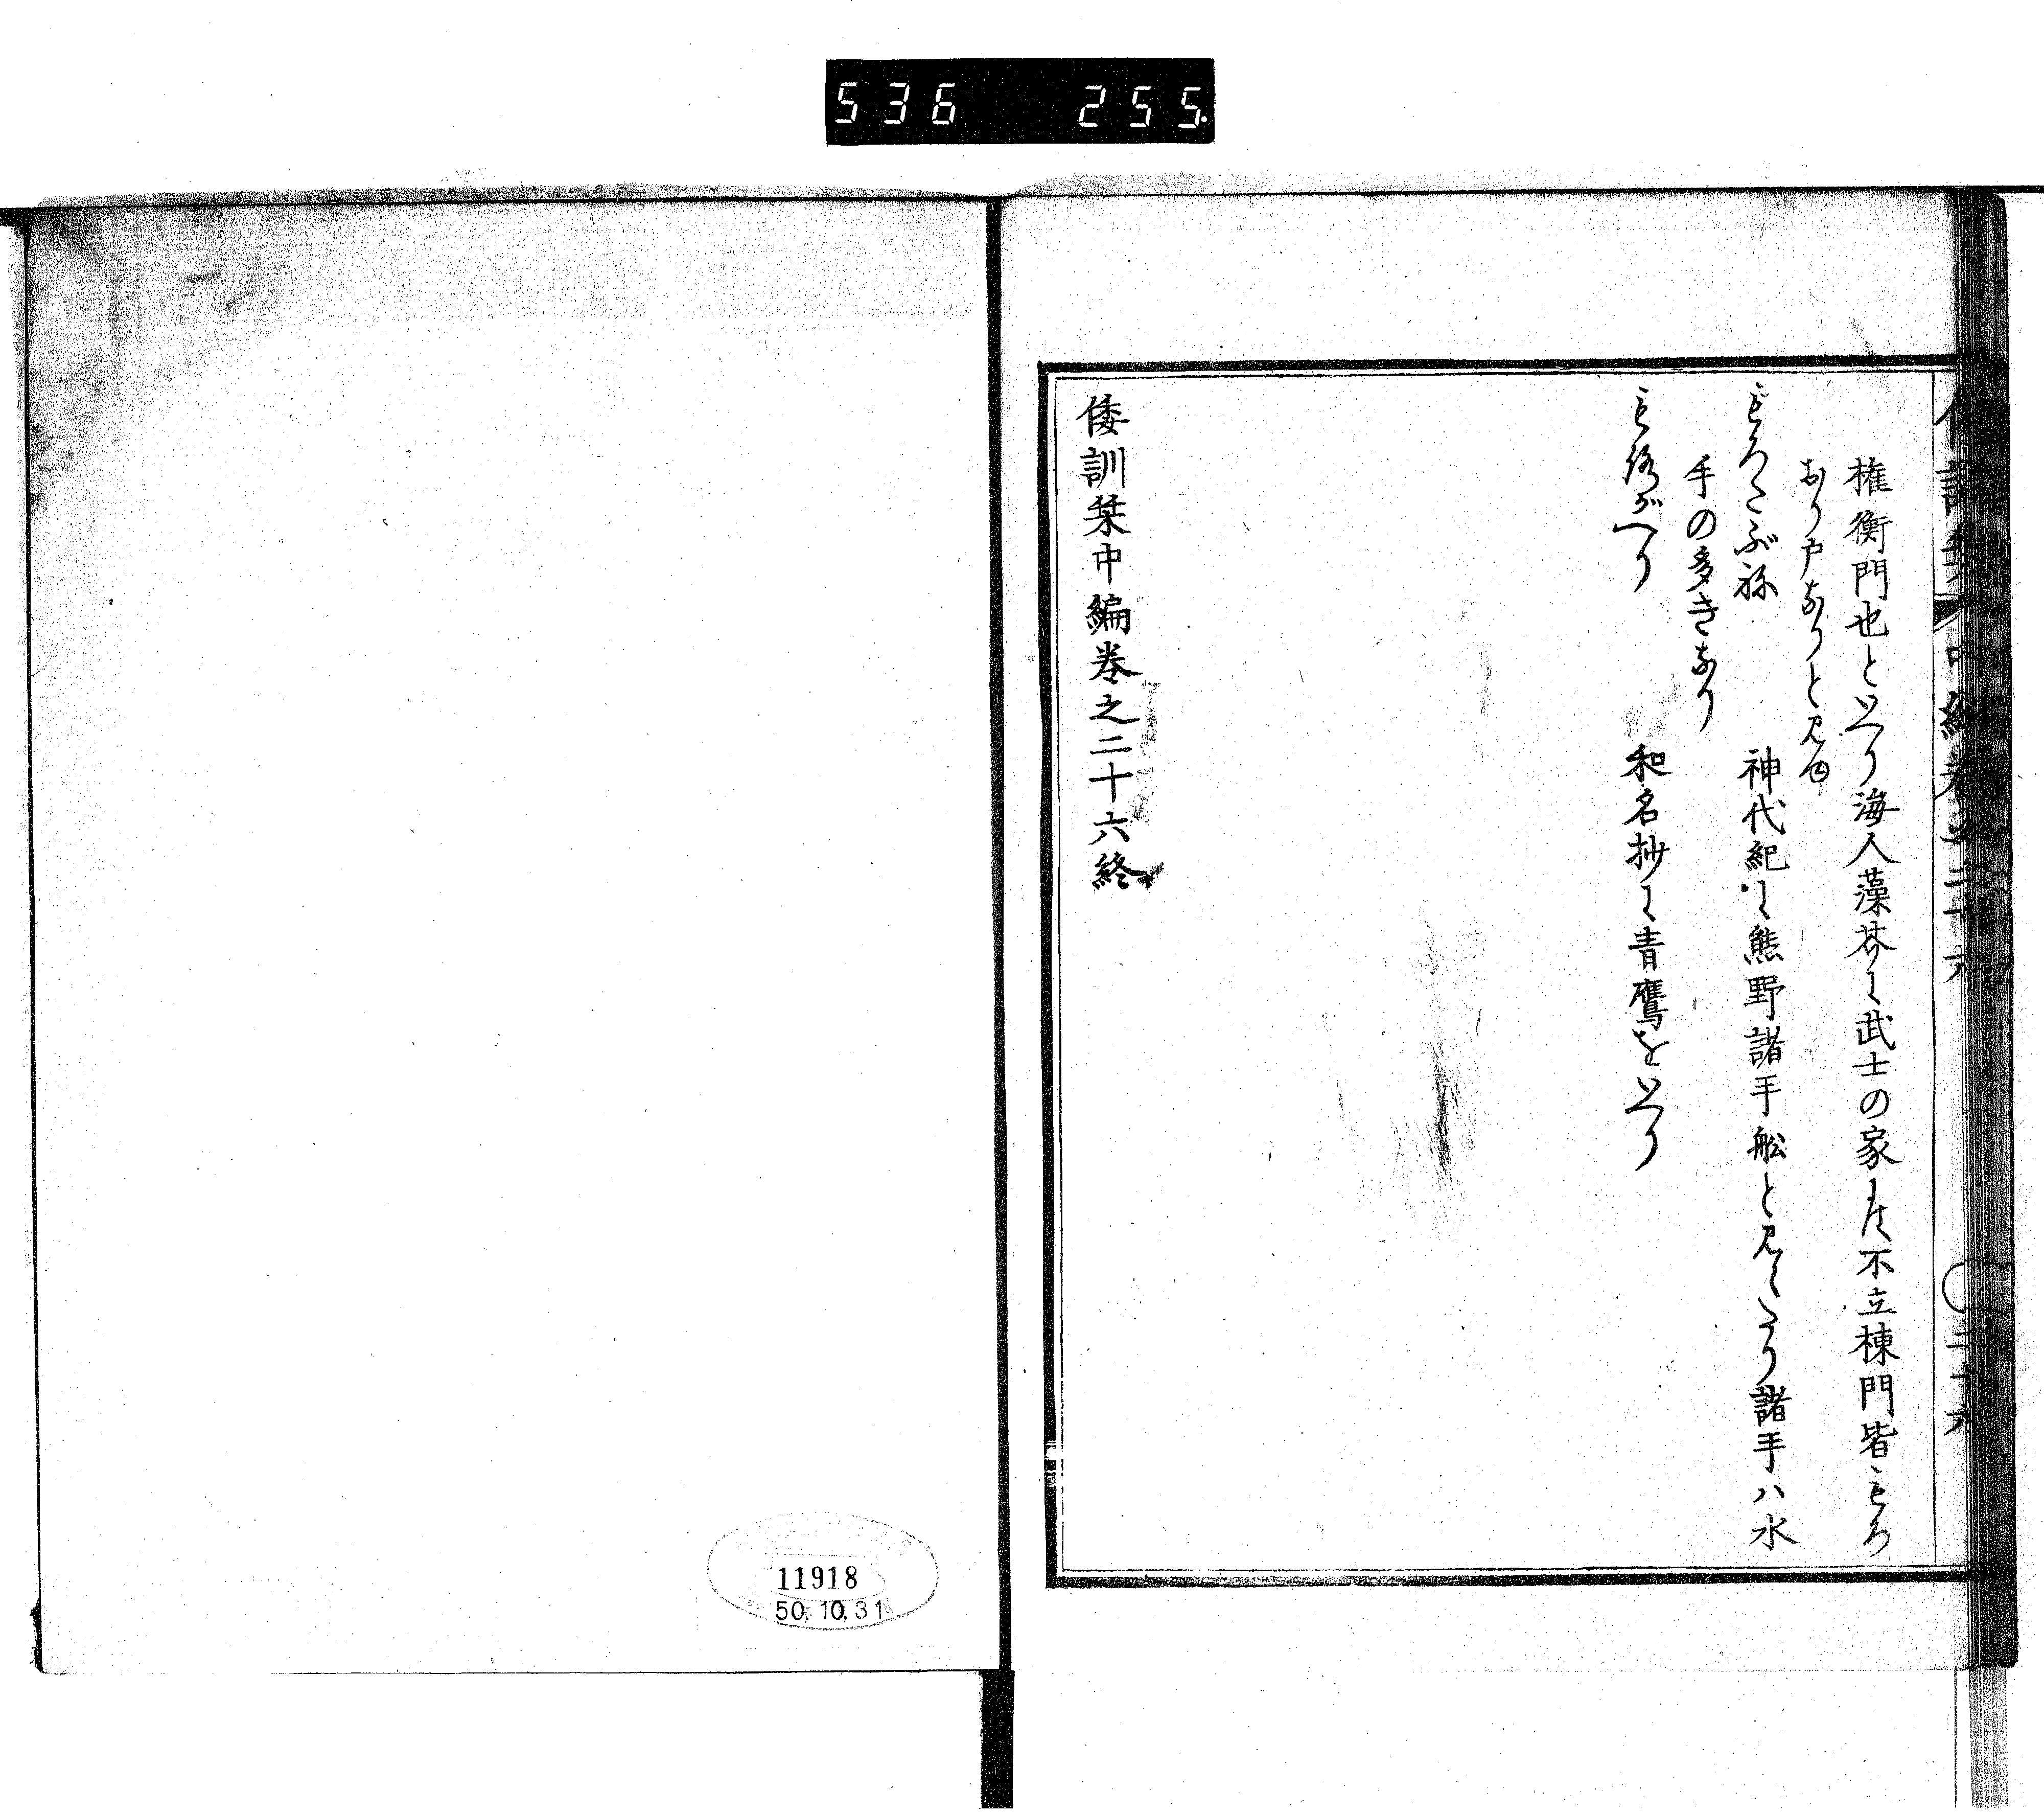 536 255
権衡門也といへり海人藻芥に武士の家には不立棟門皆もろ
おり戸なりと見ゆ
もろたぶね 神代紀に熊野諸手船と見えたり諸手ハ水
手の多きなり
もろがへり 和名抄に青鷹をいへり
倭訓栞中編巻之二十六終
11918
50.10.31